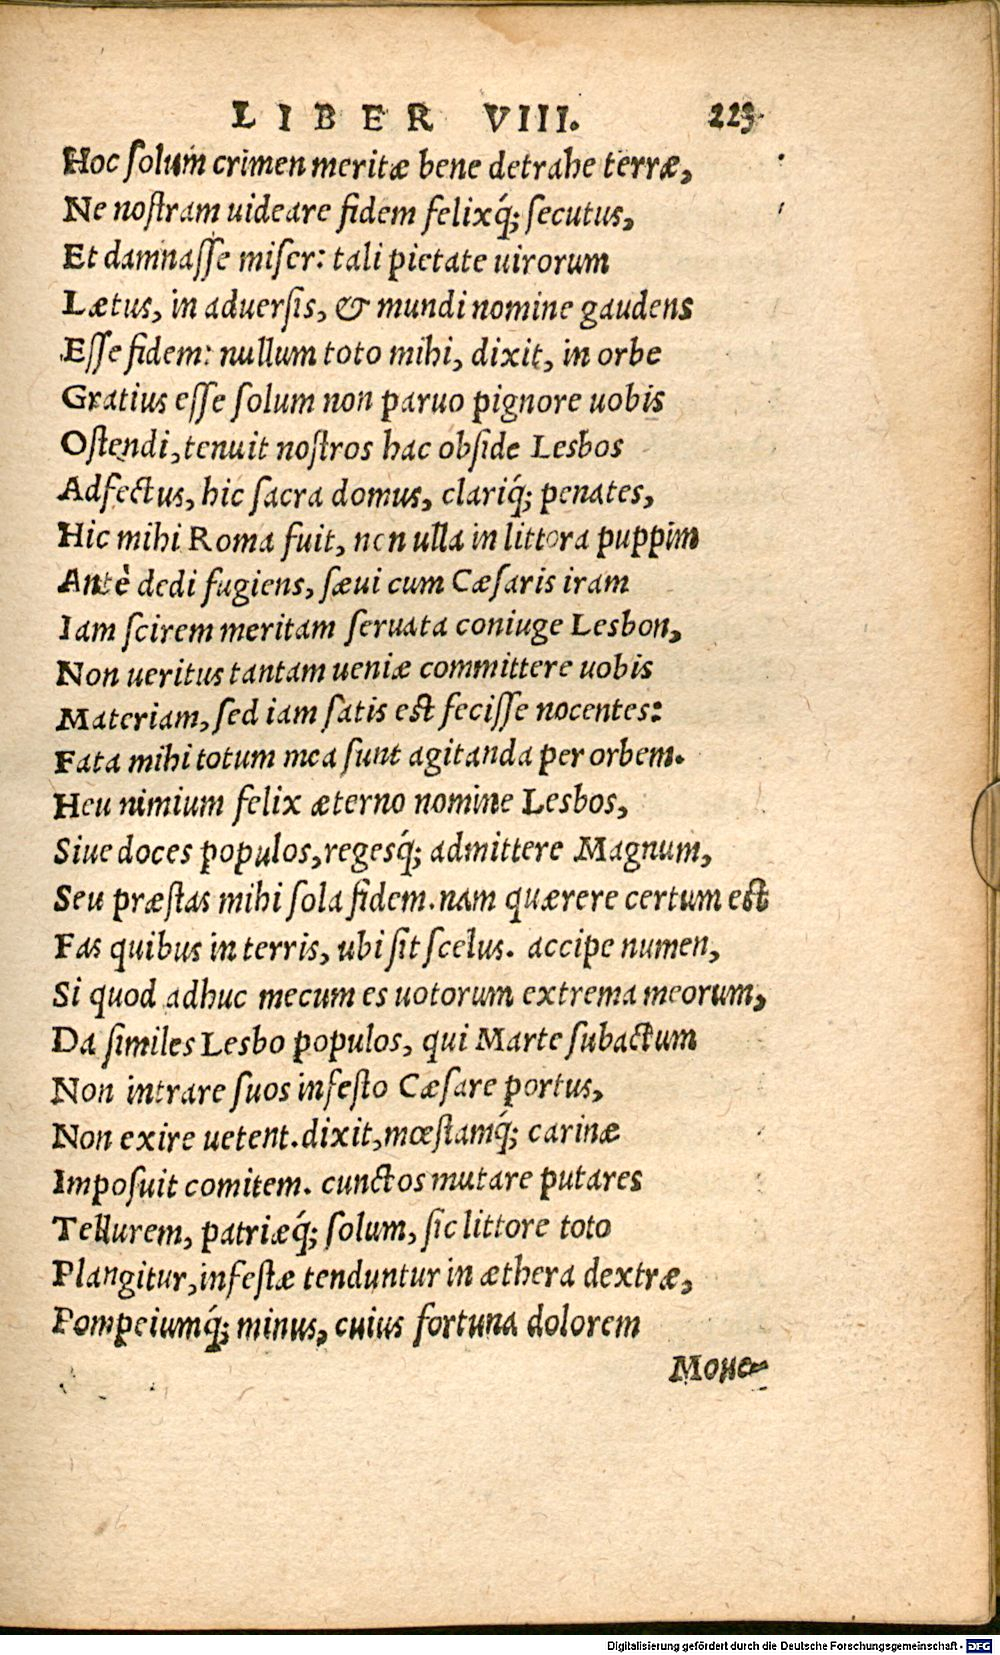 LIBER VIII. 223
Hoc ſolum crimen meritæ bene detrahe terræ,
Ne noſtram uideare fidem felixq́; ſecutus,
Et damnaſſe miſer: tali pietate uirorum
Lætus, in aduerſis, & mundi nomine gaudens
Eſſe fidem: nullum toto mihi, dixit, in orbe
Gratius eſſe ſolum non paruo pignore uobis
Oſtendi, tenuit noſtros hac obſide Lesbos
Adfectus, hic ſacra domus, clariq́; penates,
Hic mihi Roma fuit, non ulla in littora puppim
Antè dedi fugiens, ſæui cum Cæſaris iram
Iam ſcirem meritam ſeruata coniuge Lesbon,
Non ueritus tantam ueniæ committere uobis
Materiam, ſed iam ſatis est feciſſe nocentes:
Fata mihi totum mea ſunt agitanda per orbem.
Heu nimium felix æterno nomine Lesbos,
Siue doces populos, regesq́; admittere Magnum,
Seu præſtas mihi ſola fidem. nam quærere certum est
Fas quibus in terris, ubi ſit ſcelus. accipe numen,
Si quod adhuc mecum es uotorum extrema meorum,
Da ſimiles Lesbo populos, qui Marte ſubactum
Non intrare ſuos infeſto Cæſare portus,
Non exire uetent. dixit, mœſtamq́; carinæ
Impoſuit comitem. cunctos mutare putares
Tellurem, patriæq́; ſolum, ſic littore toto
Plangitur, infeſtæ tenduntur in æthera dextræ,
Pompeiumq́; minus, cuius fortuna dolorem
Moue-
Digitalisierung gefördert durch die Deutsche Forschungsgemeinschaft - DFG